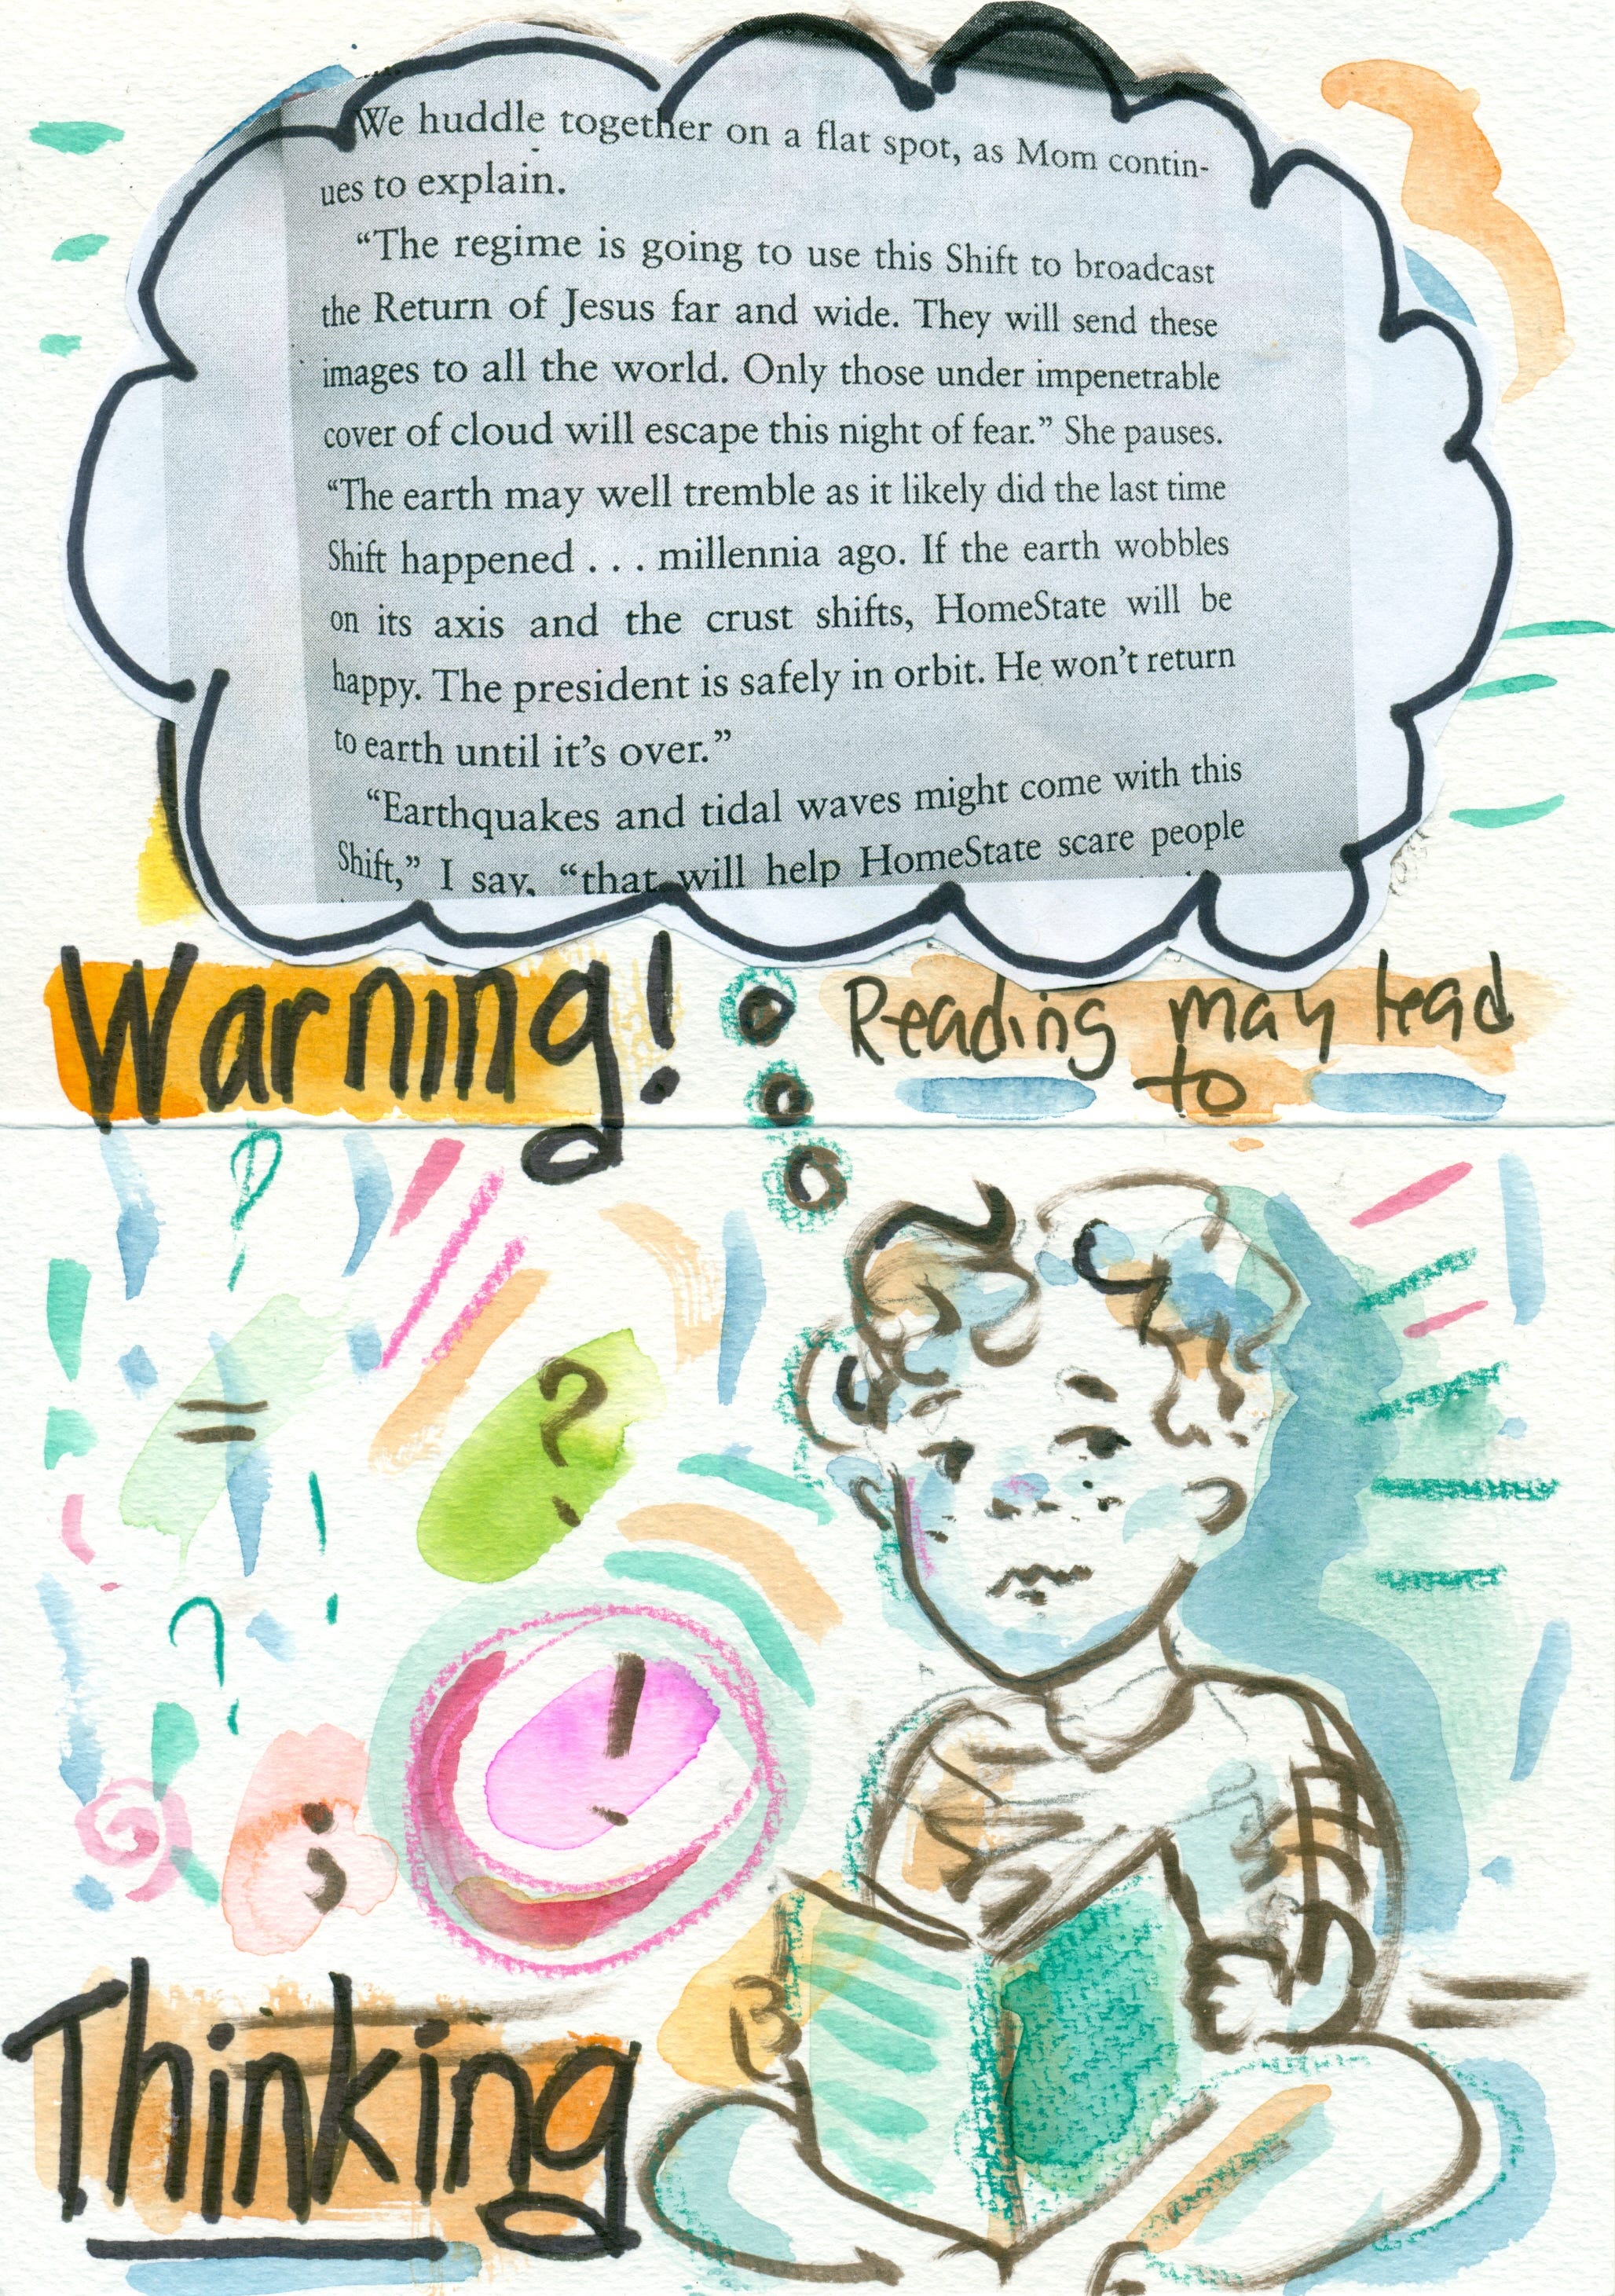 We huddle together on a flat spot, as Mom contin-
ues to explain.
“The regime is going to use this Shift to broadcast
the Return of Jesus far and wide. They will send these
images to all the world. Only those under impenetrable
cover of cloud will escape this night of fear.” She pauses.
“The earth may well tremble as it likely did the last time
Shift happened . . . millennia ago. If the earth wobbles
on its axis and the crust shifts, HomeState will be
happy. The president is safely in orbit. He won’t return
to earth until it’s over.”
“Earthquakes and tidal waves might come with this
Shift,” I say, “that will help HomeState scare people
Warning!
Reading may lead
to
?
=
?
!
?
!
;
=
Thinking